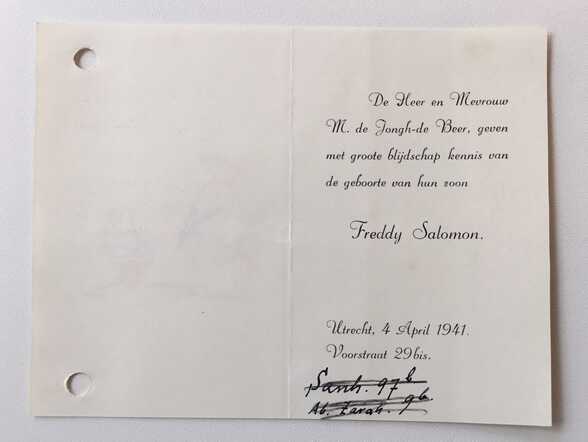 De Heer en Mevrouw
M. de Jongh-de Beer, geven
met groote blijdschap kennis van
de geboorte van hun zoon
Freddy Salomon.
Utrecht, 4 April 1941.
Voorstraat 29bis.
97